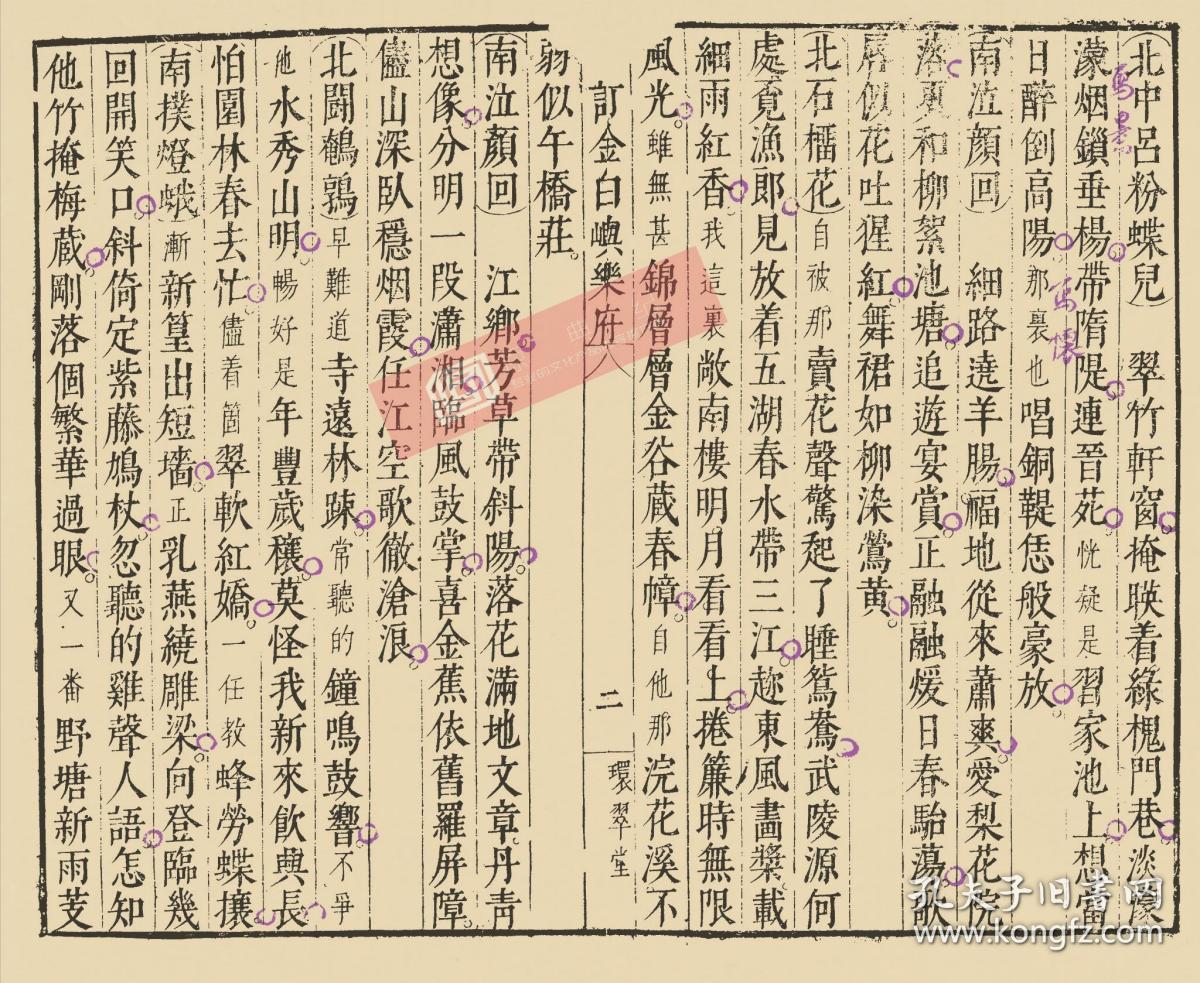 (北中呂粉蝶兒) 翠竹軒窗掩映着綠槐門巷淡濛
濛烟鎖垂楊帶隋隄連晉苑恍疑是習家池上想當
日醉倒高陽那裏也唱銅鞮恁般豪放
(南泣顏回) 細路遶羊腸福地從來蕭爽愛梨花院
落裏和柳絮池塘追遊宴賞正融融煖日春駘蕩歌
唇似花吐猩紅舞裙如柳染鶯黃
(北石榴花)自被那賣花聲驚起了睡鴛鴦武陵源何
處覓漁郎見放着五湖春水帶三江趂東風畵槳載
細雨紅香我這裏敞南樓明月看看上捲簾時無限
風光雖無甚錦層層金谷蔵春幛自他那浣花溪不
訂金白嶼樂府 二 環翠堂
弱似午橋莊
(南泣顏回) 江鄉芳草帶斜陽落花滿地文章丹青
想像分明一段瀟湘臨風鼓掌喜金蕉依舊羅屏障
儘山深臥穩烟霞任江空歌徹滄浪
(北鬪鵪鶉)早難道寺遠林踈常聽的鐘鳴鼓響不爭
他水秀山明暢好是年豐歲穰莫怪我新來飲興長
怕園林春去忙儘着箇翠軟紅嬌一任教蜂勞蝶攘
(南撲燈蛾)漸新篁出短墻正乳燕繞雕梁向登臨幾
回開笑口斜倚定紫藤鳩杖忽聽的雞聲人語怎知
他竹掩梅蔵剛落個繁華過眼又一番野塘新雨芰
寫景
寫懷
孔夫子旧書网
www.kongfz.com